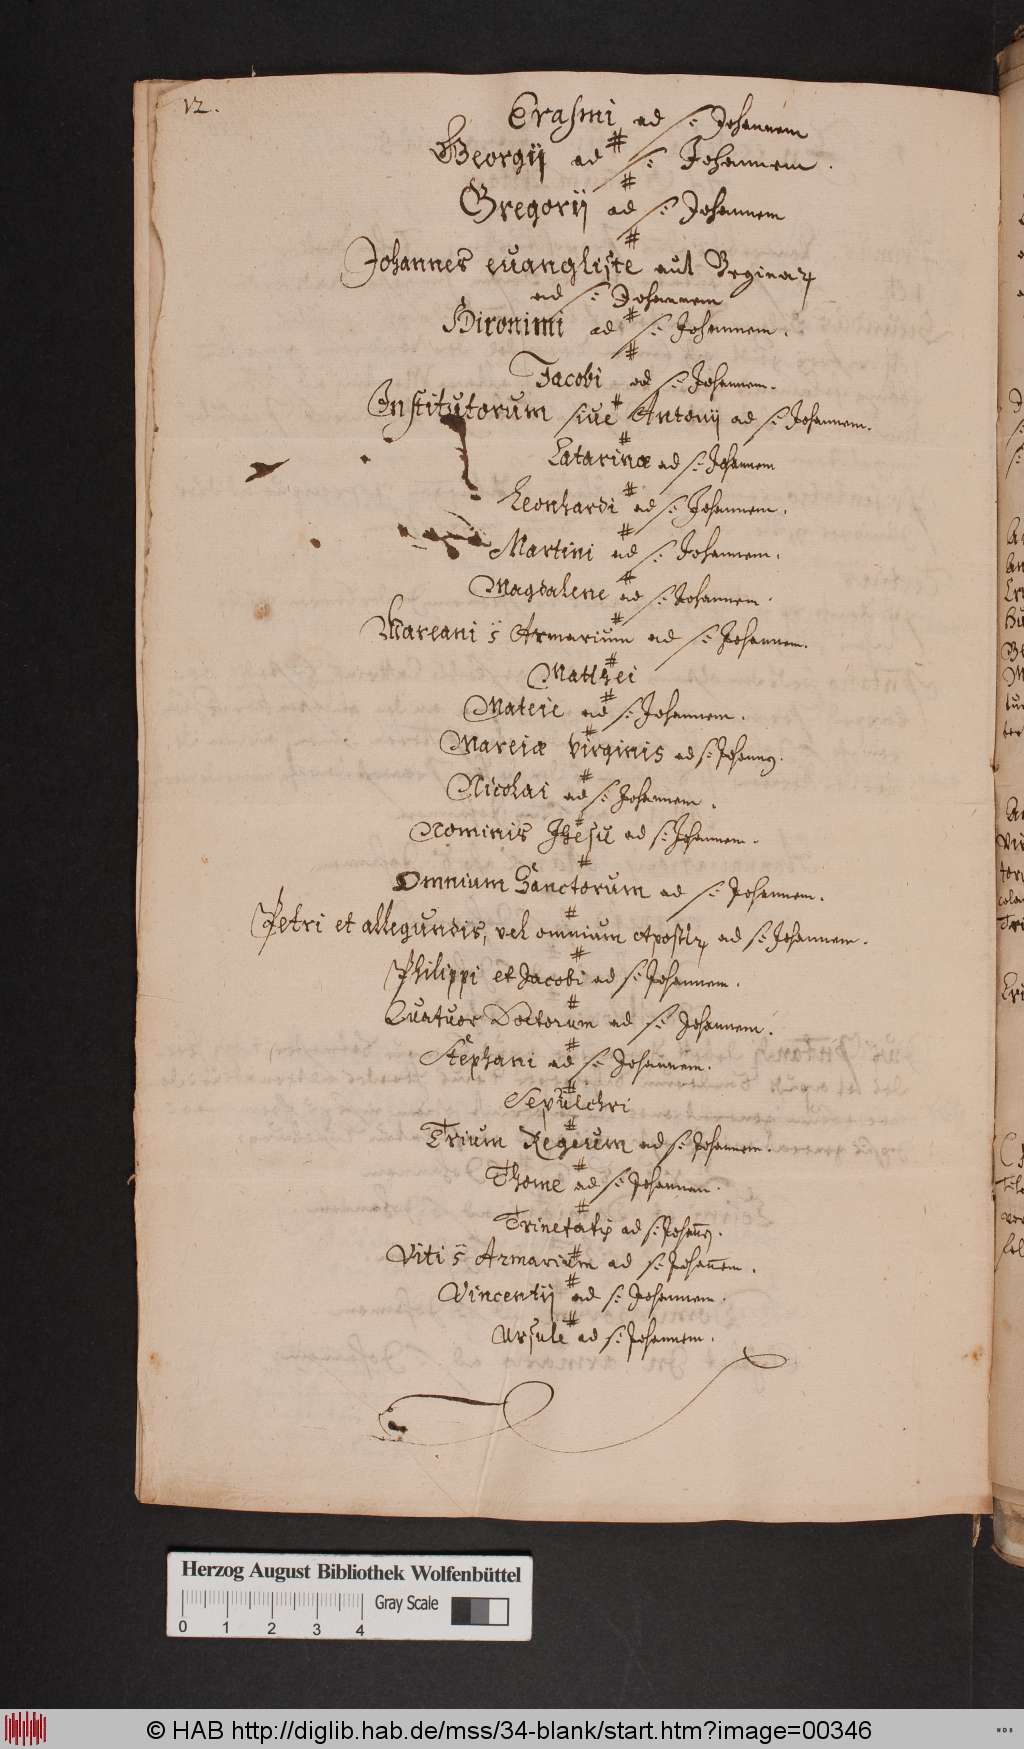 12.
Erasmi ad S: Johannem
#
Georgij ad S: Johannem.
#
Gregorij ad S: Johannem
#
Johannes evangliste aut
ad S: Johannem
#
Hironimi ad S: Johannem.
#
Jacobi ad S: Johannem.
#
Institutorum sive Antonij ad S: Johannem.
#
Catarinæ ad S: Johannem
#
Leonhardi ad S: Johannem.
#
Martini ad S: Johannem.
#
Magdalene ad S: Johannem.
#
Mareani ÿ Armarium ad S: Johannem.
#
Matthei
#
Mateie ad S: Johannem.
#
Mareiæ virginis ad S: Johannem.
#
Nicolai ad S: Johannem.
#
Nominis Jhesu ad S: Johannem.
#
Omnium Sanctorum ad S: Johannem.
#
Petri et allegundis, vel omnium Apostlr ad S: Johannem.
#
Philippi et Jacobi ad S: Johannem.
#
Quatuor Doctorum ad S: Johannem.
#
Stephani ad S: Johannem.
#
Sepulchri
#
Trium Regeum ad S: Johannem.
#
Thome ad S: Johannem.
#
Trinetatis ad S: Johannem.
#
Viti ÿ Armarium ad S: Johannem.
#
Vincentij ad S: Johannem.
#
Ursule ad S: Johannem.
Herzog August Bibliothek Wolfenbüttel
Gray Scale
0 1 2 3 4
© HAB http://diglib.hab.de/mss/34-blank/start.htm?image=00346